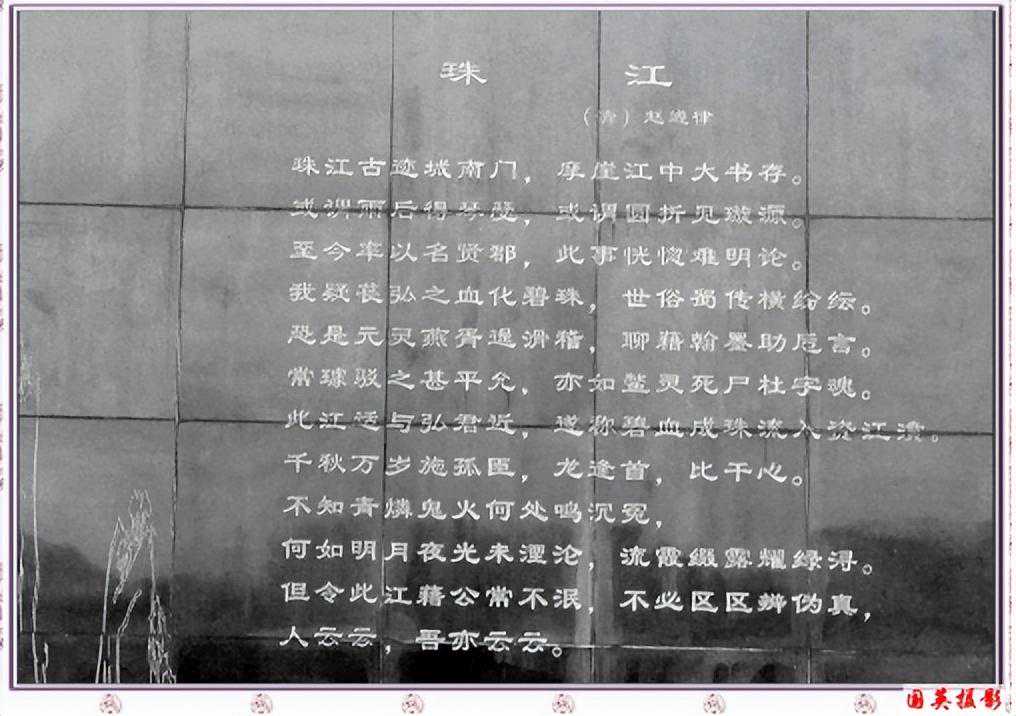 珠 江
(清)赵 律
珠江古迹城南门，摩崖江中大书存。
或谓雨后得琴瑟，或谓圆折见璇源。
至今率以名贤郡，此事恍惚难明论。
我疑苌弘之血化碧珠，世俗蜀传横纷纭。
恐是元灵燕胥逞滑稽，聊藉翰墨助卮言。
常璩驳之甚平允，亦如鳖灵死尸杜宇魂。
此江适与弘君近，遂称碧血成珠流入资江濆。
千秋万岁施孤臣，龙逢首，比干心。
不知青燐鬼火何处鸣沉冤，
何如明月夜光未湮沦，流霞缀露耀绿浔。
但令此江藉公常不泯，不必区区辨伪真，
人云云，吾亦云云。
国英摄影